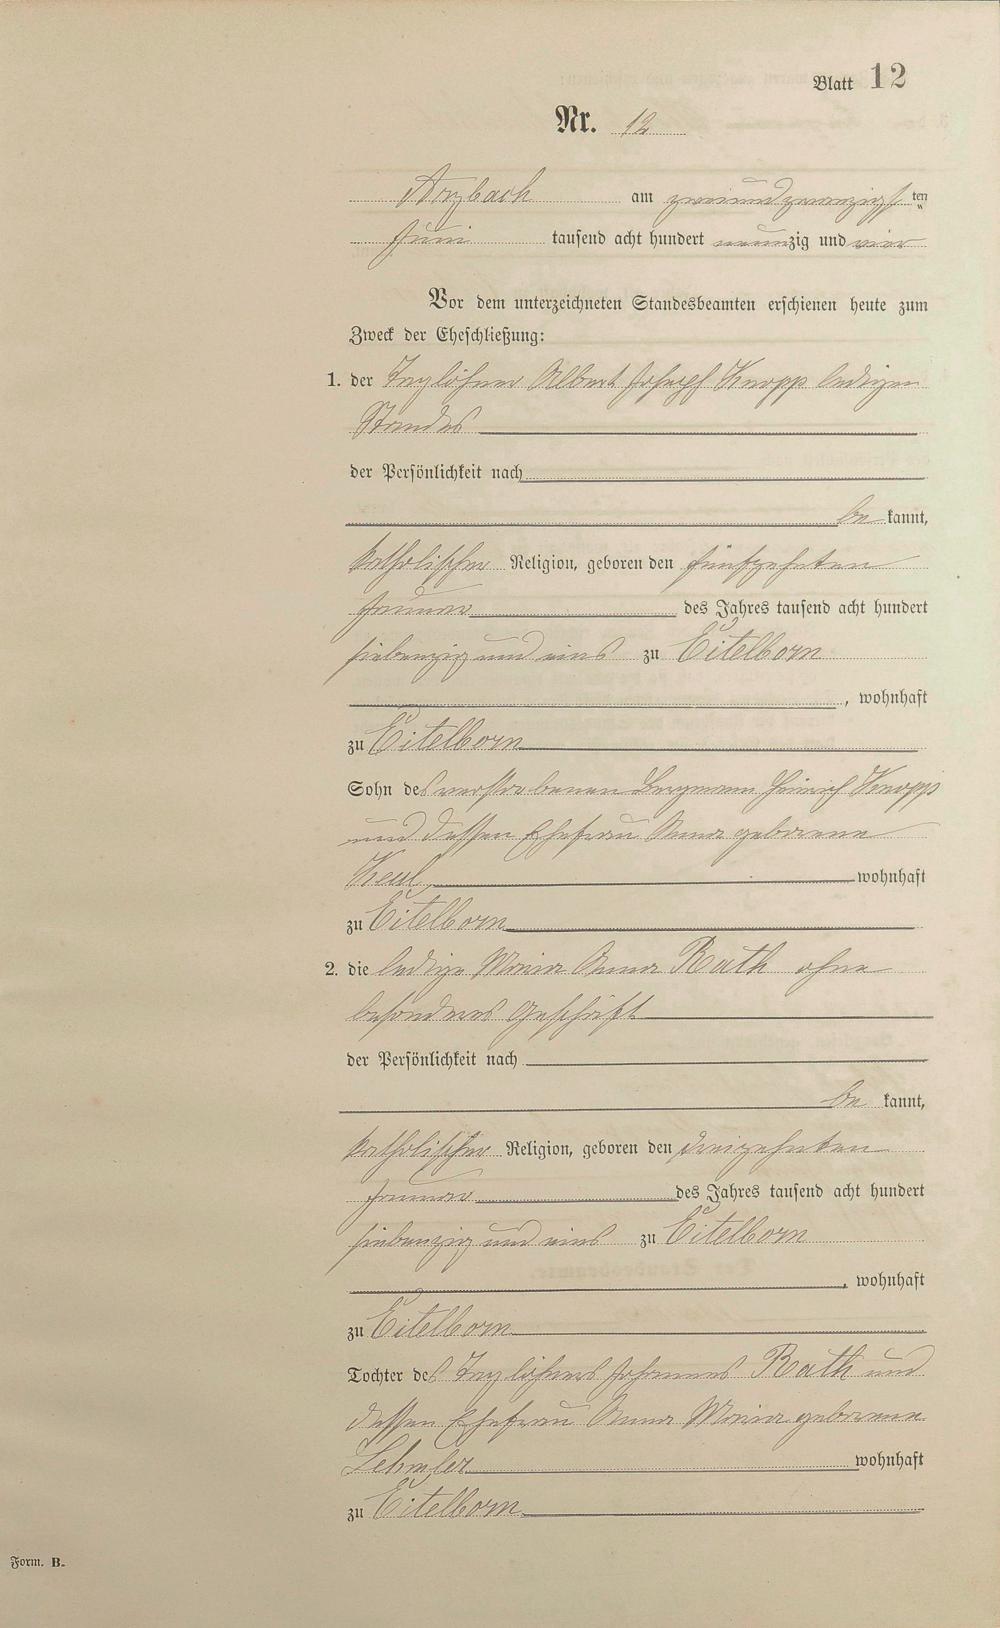 Blatt 12
Nr. 12
Arzbach am zweiundzwanzigsten
Juni tausend acht hundert neunzig und vier
Vor dem unterzeichneten Standesbeamten erschienen heute zum
Zweck der Eheschließung:
1. der Taglöhner Albert Joseph Knopp ledigen
Standes
der Persönlichkeit nach
be kannt,
katholischer Religion, geboren den fünfzehnten
Januar des Jahres tausend acht hundert
siebenzig und eins zu Eitelborn
, wohnhaft
zu Eitelborn
Sohn des verstorbenen Bergmann Heinrich Knopp
und dessen Ehefrau Anna geborene
Keul wohnhaft
zu Eitelborn
2. die ledige Maria Anna Rath ohne
besonderes Geschäft
der Persönlichkeit nach
be kannt,
katholischer Religion, geboren den dreizehnten
Januar des Jahres tausend acht hundert
siebenzig und eins zu Eitelborn
, wohnhaft
zu Eitelborn
Tochter des Taglöhners Johannes Rath und
dessen Ehefrau Anna Maria geborene
Lehmler wohnhaft
zu Eitelborn
Form. B.